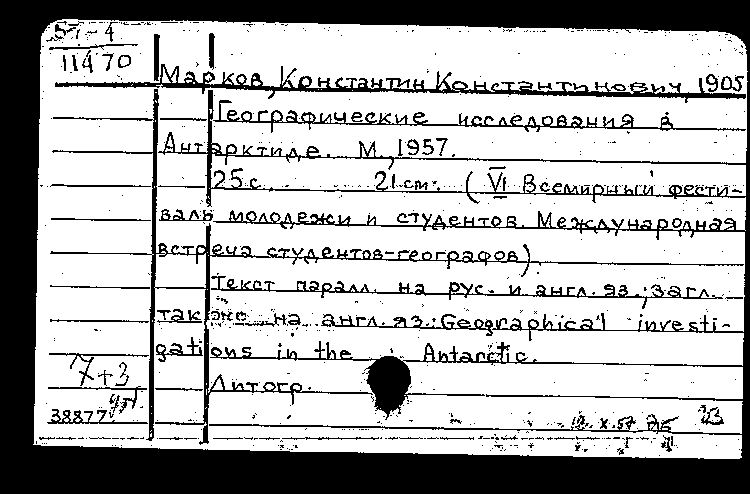 57-4
11470
Марков, Константин Константинович, 1905
Географические исследования в
Антарктиде. М., 1957.
25 с. 21 см. (VI Всемирный фести-
валь молодежи и студентов. Международная
встреча студентов-географов).
Текст паралл. на рус. и англ. яз.; загл.
также на англ. яз.: Geographical investi-
gations in the Antarctic.
Литогр.
7+3
38877